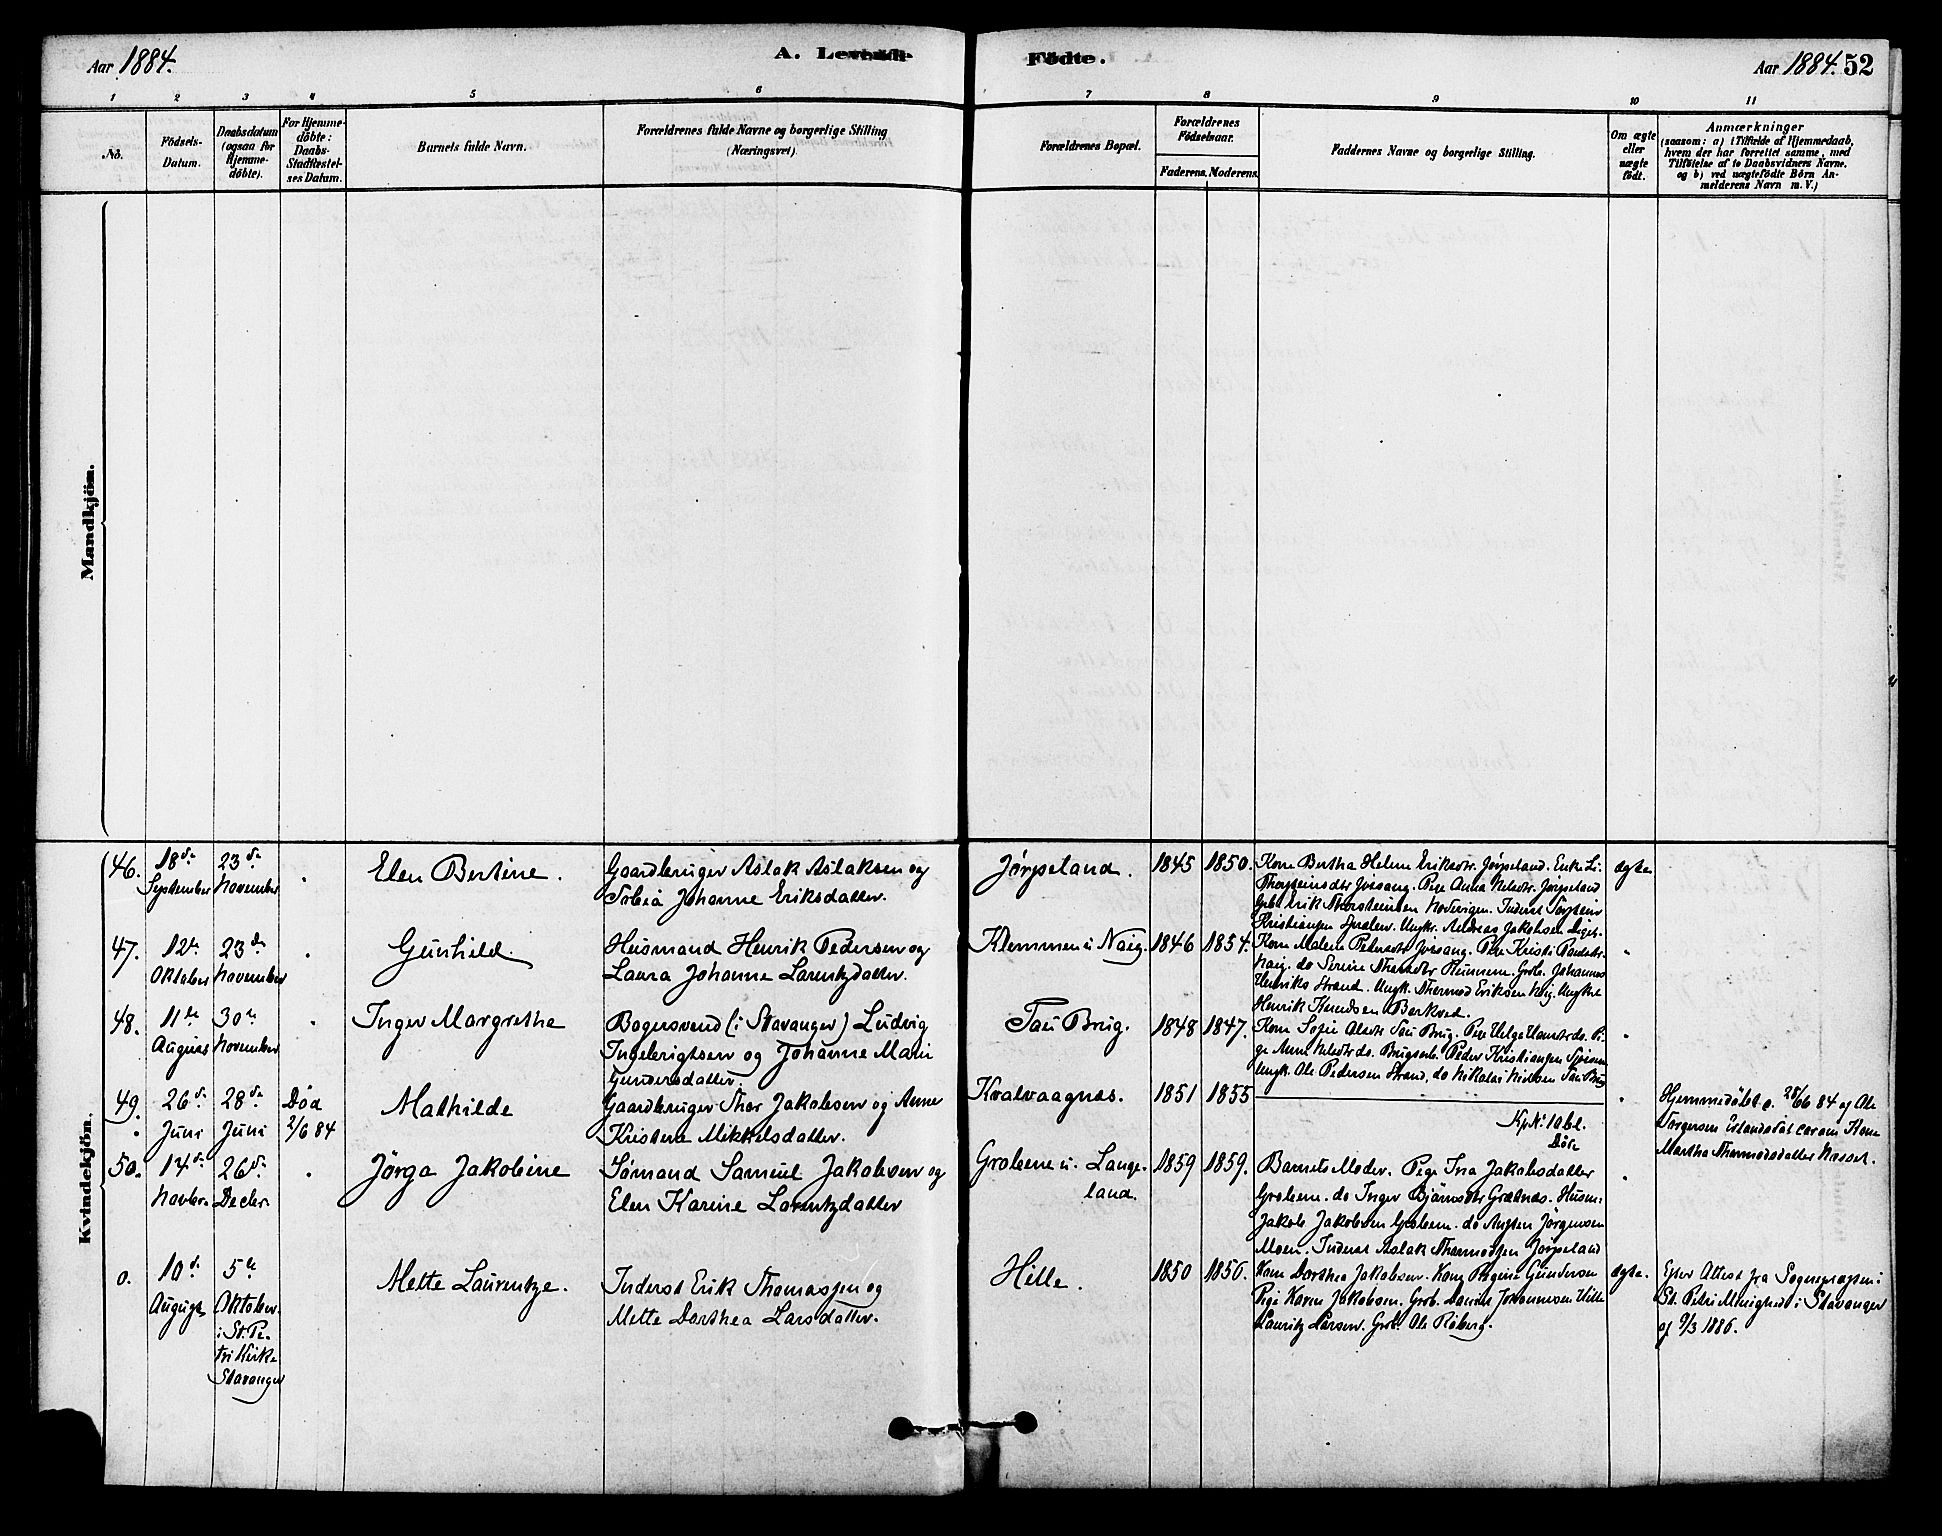 Aar 1884.
A. Levende
Födte.
Aar 1884. 52
1 2 3 4 5 6 7 8 9 10 11
No.
Födsels-
Datum.
Daabsdatum
(ogsaa for
Hjemme-
döbte).
For Hjemme-
döbte:
Daabs-
Stadfæstel-
ses Datum.
Barnets fulde Navn.
Forældrenes fulde Navne og borgerlige Stilling
(Næringsvei)
Forældrenes Bopæl.
Forældrenes
Födselsaar.
Faderens. Moderens.
Faddernes Navne og borgerlige Stilling.
Om ægte
eller
uægte
födt.
Anmærkninger
(saasom: a) i Tilfælde af Hjemmedaab,
hvem der har forrettet samme, med
Tilföielse af to Daabsvidners Navne.
og b) ved uægtefödte Börn An-
melderens Navn m. V.)
Mandkjön.
Kvindekjön.
46.
18de
September
23de
November
Elen Bertine.
Gaardbruger Aslak Aslaksen og
Tobia Johanne Eriksdatter.
Jørpeland.
1845 1850.
Kone Bertha Helene Eriksdtr. Jørpeland. Enke Li-
Thorsteinsdtr Jøssang. Pige Anna Nelsdtr. Jørpeland
Gbr. Erik Thorsteinsen Inderst Torstein
Kristiansen Ungkr. Andreas Jakobsen
ægte
47.
12te
Oktober
23de
November
Gunhild.
Husmand Henrik Pedersen og
Laura Johanne Larentzdatter.
Klemmen u. Naig.
1846 1854.
Kone Malene Pedersdtr Jøssang. Pige Kristi
Naig. do Serine Grbr. Johannes
Henriks Strand. Ungk. Thormod Eriksen Naig. Ungkrl
Henrik Knudsen Barkved.
48.
11te
August
30te
November
Inger Margrethe
Bogersvend (i Stavanger) Ludvig
Ingebrigtsen og Johanne Marie
Gundersdatter.
Tau Brug.
1848 1847.
Kone Sofie Olsdtr Tau Brug. Pige Helga do. Pi-
ge Anne Nelsdtr do. Peder Kristiansen
Ungk. Ole Pedersen Strand, do Nikolai Nielsen Tau Brug
49.
26de
Juni
28de
Juni
Död
2/6 84
Mathilde
Gaardbruger Thor Jakobsen og Anne
Kristene Mikkelsdatter.
Kvalvaagnæs.
1851 1855
Hjemmedöbt d. 28/6 84 af Ole
Torgersen coram Kone
Martha Thormodsdatter Nasset.
50.
14de
Novbr.
26de
Decbr.
Jörga Jakobine
Sømand Samuel Jakobsen og
Elen Karine Larentzdatter
Groleene u. Lange-
land.
1859 1859.
Barnets Moder. Pige Ina Jakobsdatter
Groleene. do Inger Bjørnsdtr Husm.
Jakob Jakobsen Groleene. do Jörgensen
Moen. Inderst Aslak Thormodsen Jørpeland
0.
10de
August
5te
Oktober
i St. Pe-
tri Kirke
Stavanger
Mette Laurentze.
Inderst Erik Thomassen og
Mette Dorthea Larsdatter.
Hille.
1850 1856.
Kone Dorthea Jakobsen. Kone Regine Gundersen
Pige Karen Jakobsen. Grbr. Daniel Johannesen Hille
Lauritz Larsen. Grbr. Ole Röberg.
ægte.
Efter Attest fra Sognepræsten i
St. Petri Menighed i Stavanger
af 9/3 1886.